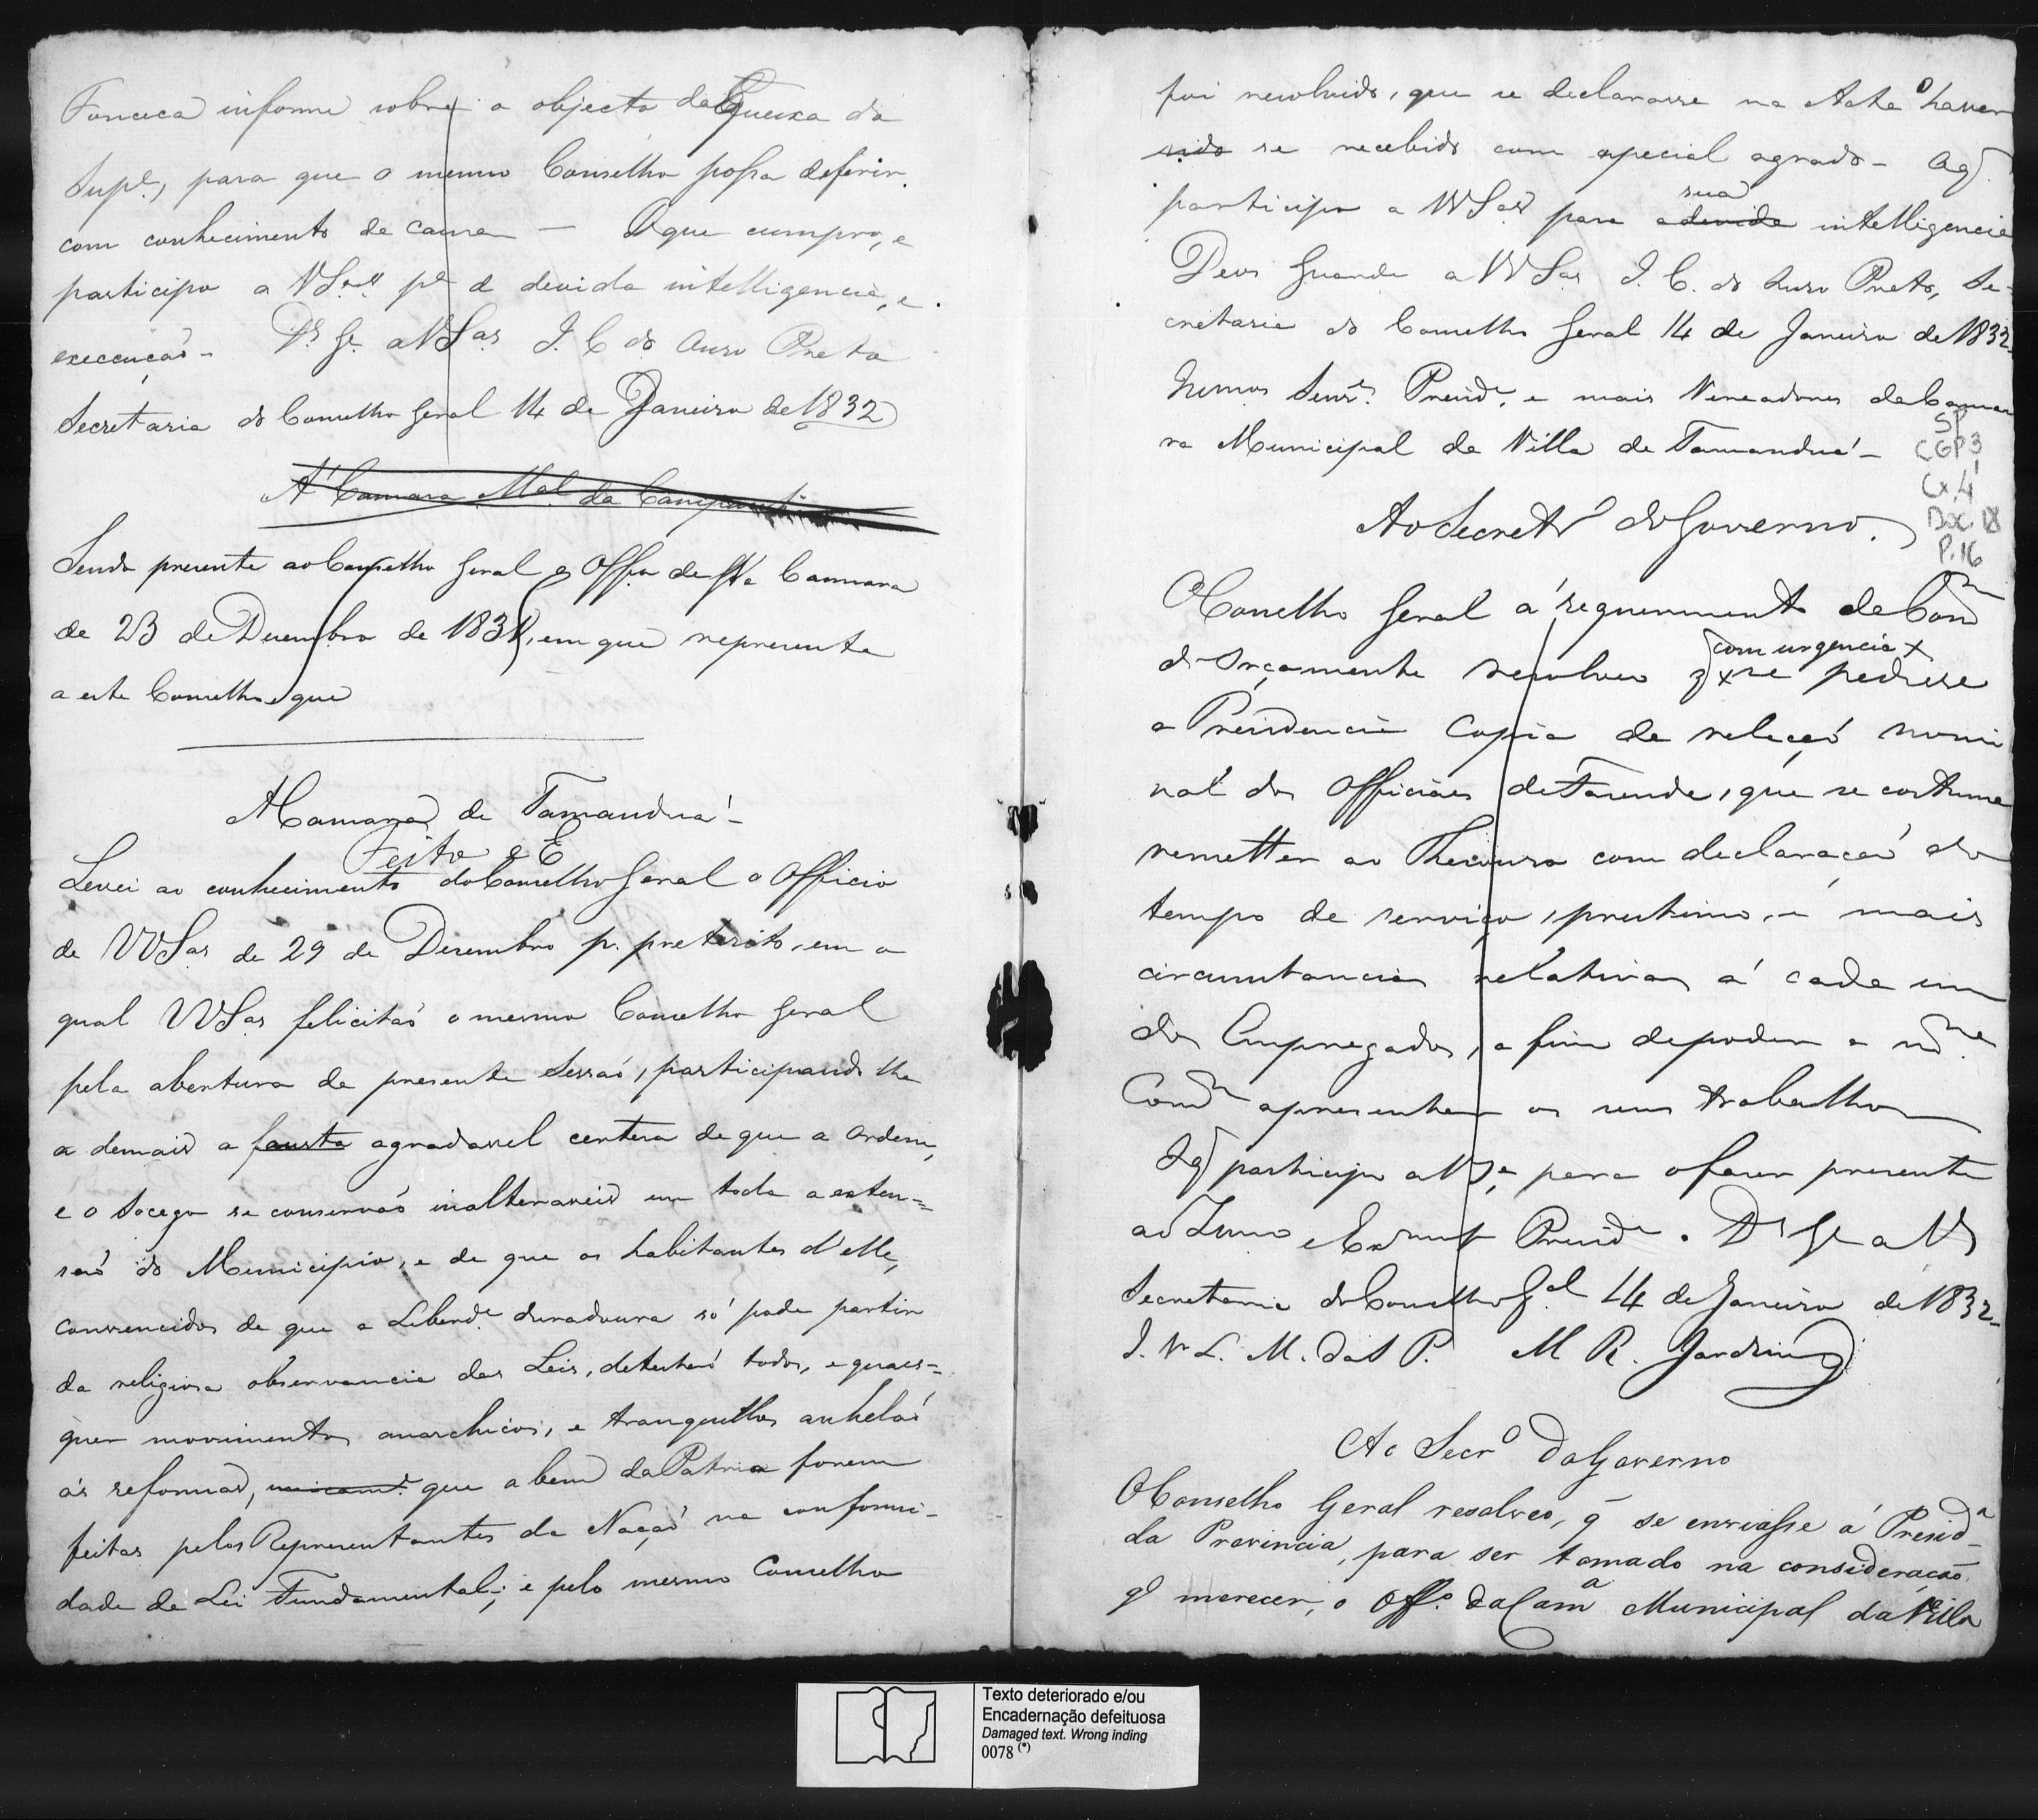 Fonceca informe sobre o objecto da Queixa do
Supe, para que o mesmo Conselho possa deferir
com conhecimento de causa — O que cumpro, e
participo a VSas pa a devida intelligencia, e
execuçaõ - Ds Ge a VSas I. C do Ouro Preto
Secretaria do Conselho Geral 14 de Janeiro de 1832
A' Camara Mal da Campanha
Sendo presente ao Conselho Geral o Offo dessa Camara
de 23 de Dezembro de 1831, em que representa
a este Conselho, que
A Camara de Tamanduá -
Feito e E
Levei ao conhecimento do Conselho Geral o Officio
de VVSas de 29 de Dezembro p. preterito, em o
qual VVSas felicitaõ o mesmo Conselho Geral
pela abertura da presente Sessaõ, participando lhe
a demais a fausta agradavel certeza de que a ordem,
e o Socego se conservaõ inalteraveis em toda a exten=
saõ do Municipio, e de que os habitantes d'elle,
convencidos de que a Liberde duradoura só póde partir
da religiosa observancia das Leis, detestaõ todos, e quaes=
quer movimentos anarchicos, e tranquillos anhelaõ
as reformas, que a bem da Patria forem
feitas pelos Representantes da Naçaõ na conformi-
dade da Lei Fundamental; e pelo mesmo Conselho
foi resolvido, que se declarasse na Acta o haver
sido se recebido com especial agrado - O q̃
participo a VVSas para a devida sua intelligencia
Deos Guarde a VVSas I. C. do Ouro Preto, Se-
cretaria do Conselho Geral 14 de Janeiro de 1832-
Illmos Senrs Preside, e mais Vereadores da Cama
ra Municipal da Villa de Tamanduá -
SP
CGP3
Cx.4
Doc. 18
P.16
Ao Secreto do Governo.
O Conselho Geral a' requerimento da Comm
do Orçamento resolveo q̃ x se pedisse
com urgencia x
a Presidencia Copia da relaçaõ nomi
nal dos Officiaes de Fazenda, que se costuma
remetter ao Thesouro com declaraçaõ do
tempo de serviço, prestimo, e mais
circunstancias relativas á cada um
dos Empregados, a fim de poder a mma
Comm apresentar os seus trabalhos
O q̃ participo a VSa para o fazer presente
ao Illmo e Exmo Sr Preside. Ds Ge a VS
Secretaria do Conselho Gal 14 de Janeiro de 1832-
I. V L. M. da S P. M R. Jardim
Ao Secro do Governo
O Conselho Geral resolveo, q̃ se enviasse á Preside
da Provincia, para ser tomado na consideração
q̃ merecer, o Offo da Cama Municipal da Villa
Texto deteriorado e/ou
Encadernação defeituosa
Damaged text. Wrong inding
0078 (*)